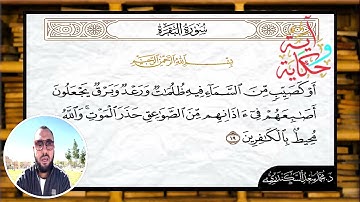 سُورَةُ البَقَرَةِ
آية
و
حكاية
بِسْمِ اللَّهِ الرَّحْمَٰنِ الرَّحِيمِ
أَوْ كَصَيِّبٍ مِّنَ السَّمَاءِ فِيهِ ظُلُمَاتٌ وَرَعْدٌ وَبَرْقٌ يَجْعَلُونَ
أَصَابِعَهُمْ فِي ءَاذَانِهِم مِّنَ الصَّوَاعِقِ حَذَرَ الْمَوْتِ ۚ وَاللَّهُ
مُحِيطٌ بِالْكَافِرِينَ ١٩